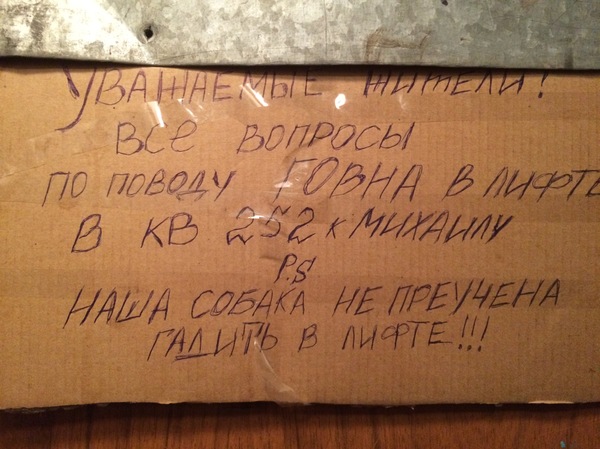 УВАЖАЕМЫЕ ЖИТЕЛИ!
ВСЕ ВОПРОСЫ
ПО ПОВОДУ ГОВНА В ЛИФТЕ
В КВ 252 К МИХАИЛУ
P.S
НАША СОБАКА НЕ ПРЕУЧЕНА
ГАДИТЬ В ЛИФТЕ!!!